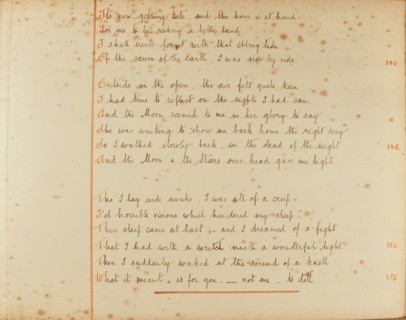 It's now getting late, and the hour is at hand
For me to be seeking a better land,
I shall never forget with that ebbing tide
Of the scum of the earth, I was side by side. 140
Outside in the open, the air felt quite keen
I had time to reflect on the sights I had seen
And the Moon seemed to me in her glory to say
She was waiting to show me back home the right way
So I walked slowly back, in the dead of the night
And the Moon & the Stars over head gave me light.
Tho' I lay wide awake, I was all of a creep
I'd horrible visions which hindered my sleep
Then sleep came at last; - and I dreamed of a fight
That I had with a wretch 'neath a wonderful light
Then I suddenly waked at the sound of a knell
What it meant, is for you, — not me, to tell 152